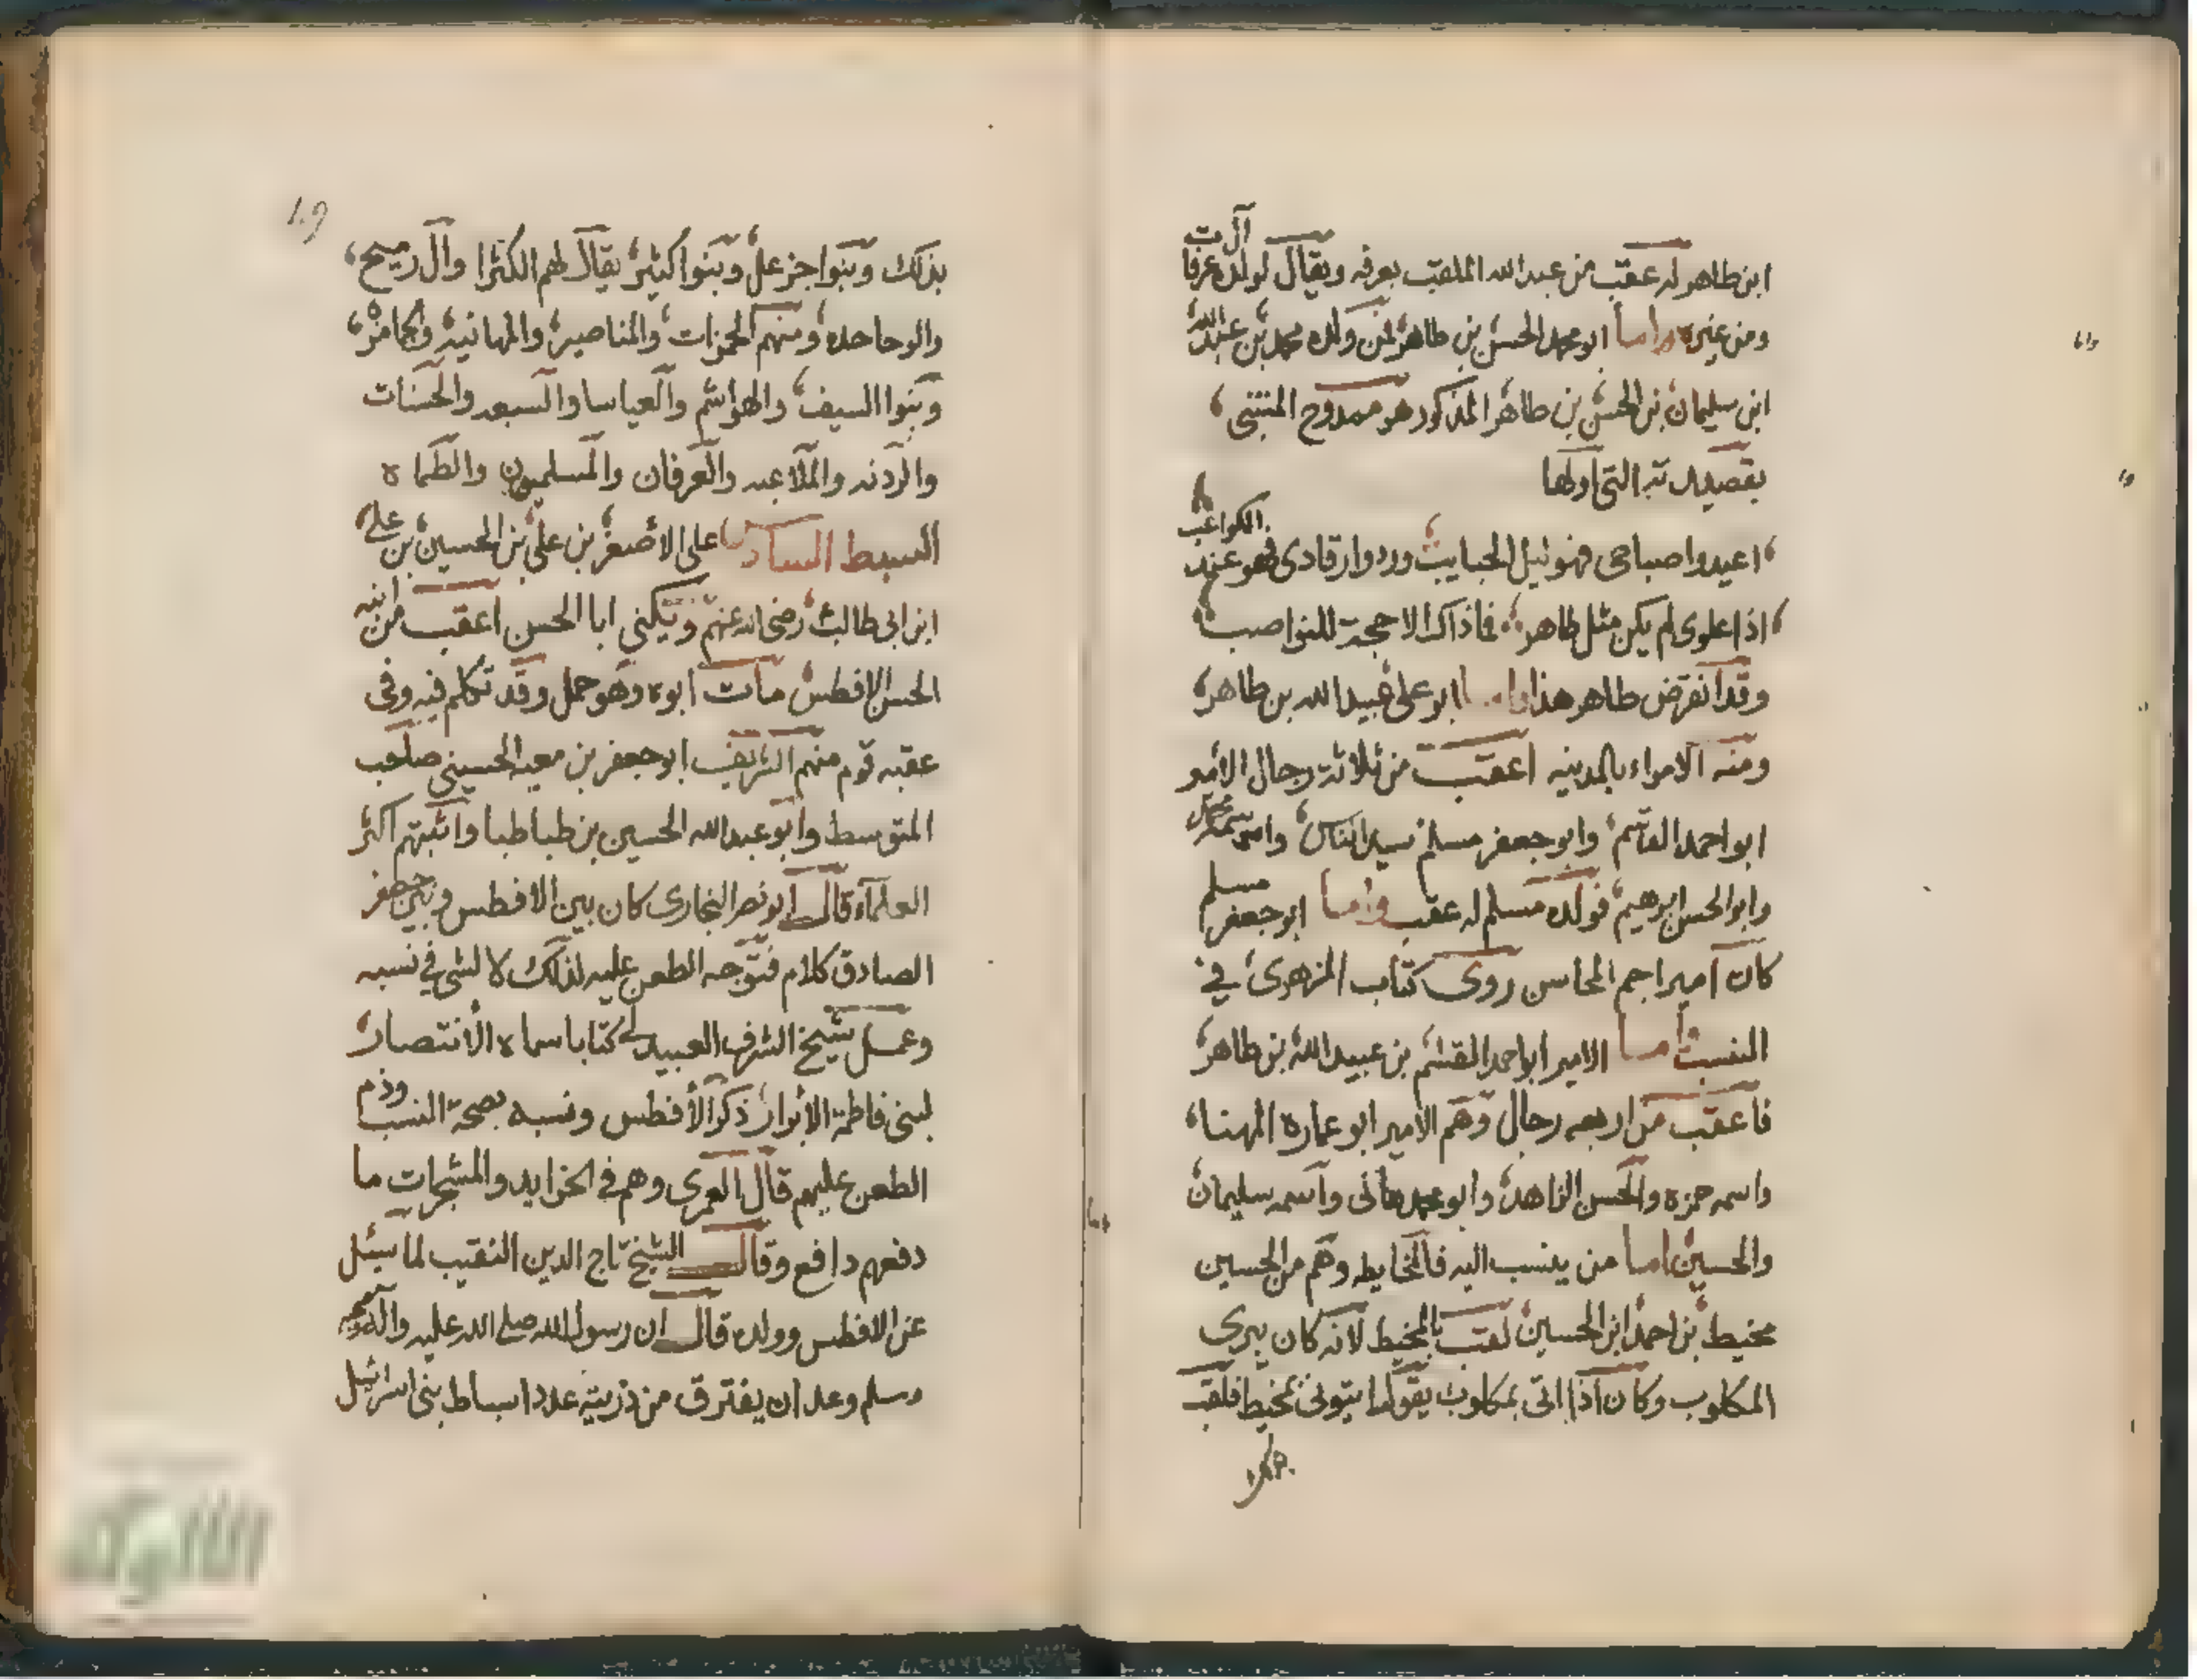 ابن طاهر له عقب من عبد الله الملقب بعرفه ويقال لولده عرفات آل
ومن غيره واما ابو محمد الحسن بن طاهر فمن ولده محمد بن عبيد الله
ابن سليمان بن الحسن بن طاهر المذكور هو ممدوح المتنبي
بقصيدته التي اولها
اعيدوا صباحى فهو نيل الحبايب وردوا رقادى فهو عند الكواعب
اذا علوى لم يكن مثل طاهر فما ذاك الا حجة للنواصب
وقد انقرض طاهر هذا واما ابو على عبيد الله بن طاهر
ومنه الامراء بالمدينه اعقب من ثلاثة رجال الامير
ابو احمد القاسم وابو جعفر مسلم سيد الناس واسمه محمد
وابو الحسن ابرهيم فولده مسلم له عقب واما ابو جعفر مسلم
كان اميرا جم المحاسن روى كتاب الزهرى في
النسب اما الامير ابو احمد القسم بن عبيد الله بن طاهر
فاعقب من اربعه رجال وهم الامير ابو عماره المهنا
واسمه حمزه والحسن الزاهد وابو محمد هانى واسمه سليمان
والحسين اما من ينسب اليه فالمخايطه وهم من الحسين
مخيط بن احمد ابن الحسين لقب بالمخيط لانه كان يبرى
المكلوب وكان اذا اتى بمكلوب يقول ايتونى بمخيط فلقب
بذلك
109
بذلك وبنوا جزعل وبنوا كثير يقال لهم الكثرا وآل رميح
والوحاحده ومنهم الحمزات والمناصير والمهانيه والجمامزه
وبنوا السيف والهواشم والعياسا والسبعه والحسنات
والردنه والملاعبه والعرفان والمسلميون والطماه
السبط السادس على الاصغر بن على بن الحسين بن على
ابن ابى طالب رضى الله عنهم ويكنى ابا الحسن اعقب من ابنه
الحسن الافطس مات ابوه وهو حمل وقد تكلم فيه وفى
عقبه قوم منهم الشريف ابو جعفر بن معيه الحسينى صاحب
المتوسط وابو عبد الله الحسين بن طباطبا واثبتهم اكثر
العلماء قال ابو نصر البخارى كان بين الافطس وبين جعفر
الصادق كلام فتوجه الطعن عليه لذلك لا لشى في نسبه
وعمل شيخ الشرف العبيدلى كتابا سماه الانتصار
لبنى فاطمة الابرار ذكر الافطس ونسبه بصحة النسب وذم
الطعن عليهم قال العمرى وهم فى الجرايد والمشجرات ما
دفعهم دافع وقال الشيخ تاج الدين النقيب لما سئل
عن الافطس وولده قال ان رسول الله صلى الله عليه واله وصحبه
وسلم وعد ان يفترق من ذريته عدد اسباط بنى اسرائيل